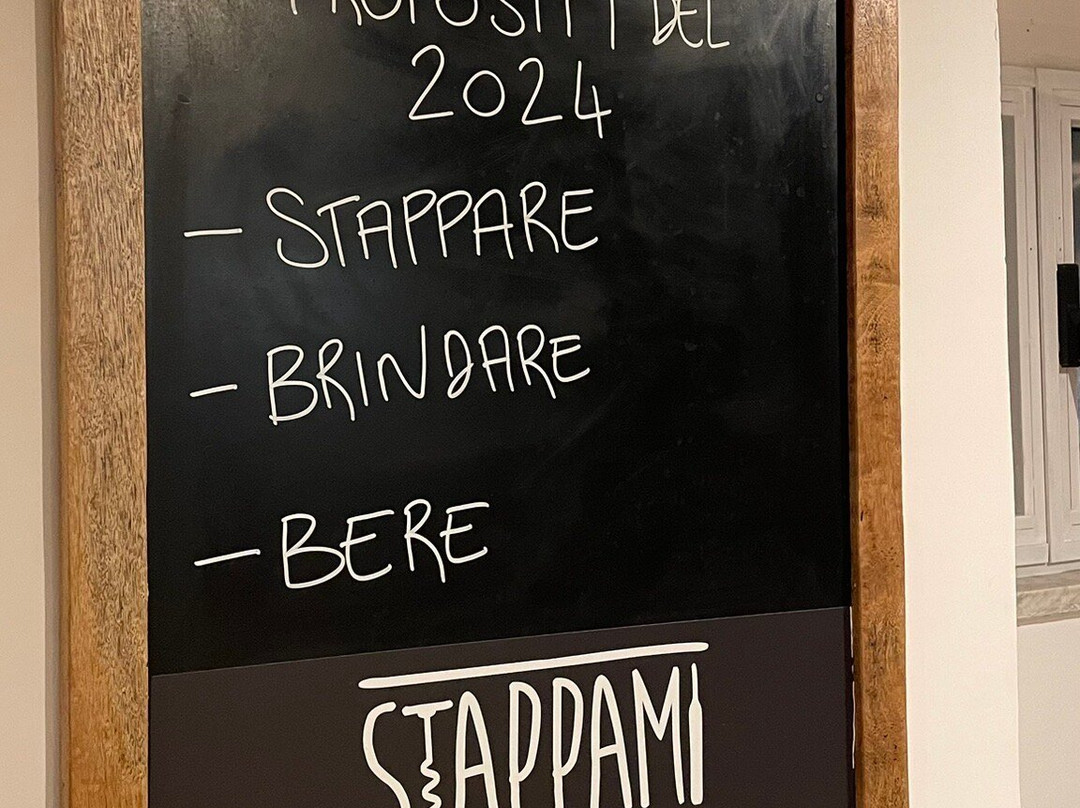 PROPOSITI DEL
2024
- STAPPARE
- BRINDARE
- BERE
STAPPAMI